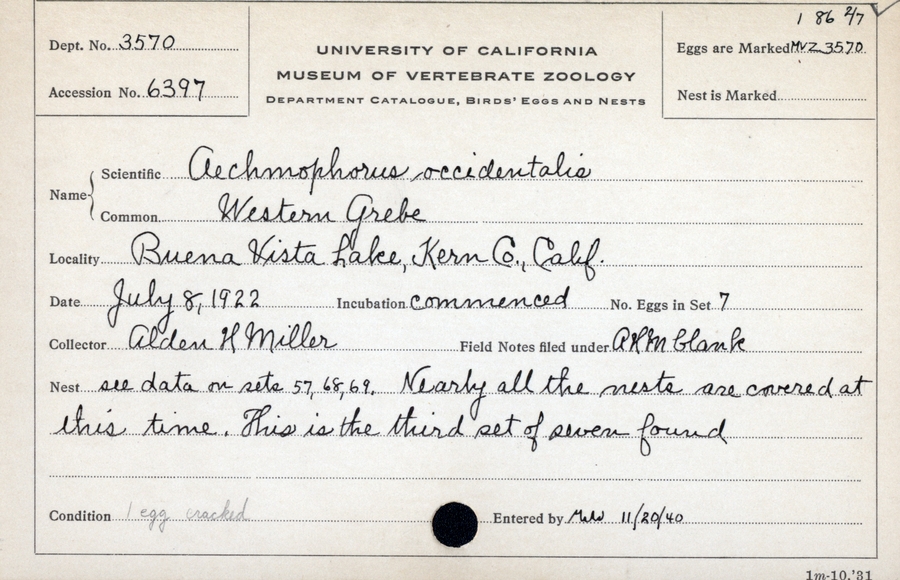 1 86 2/7
Dept. No. 3570
UNIVERSITY OF CALIFORNIA
MUSEUM OF VERTEBRATE ZOOLOGY
DEPARTMENT CATALOGUE, BIRDS' EGGS AND NESTS
Eggs are Marked MVZ 3570
Accession No. 6397
Nest is Marked
Name
Scientific Aechmophorus occidentalis
Common Western Grebe
Locality Buena Vista Lake, Kern Co., Calif.
Date July 8, 1922 Incubation commenced No. Eggs in Set 7
Collector Alden H Miller Field Notes filed under AHM blank
Nest see data on sets 57, 68, 69. Nearly all the nests are covered at
this time. This is the third set of seven found
Condition 1 egg cracked Entered by 11/20/40
1m-10,'31